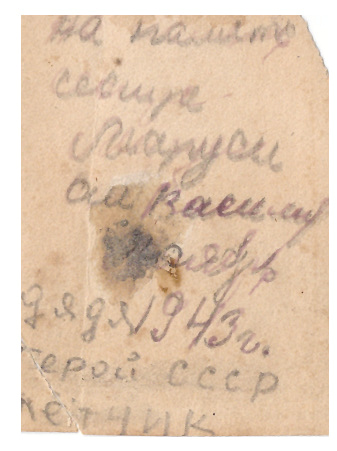 на память
сестре
Маруси
от Васи
Ноябрь
дядя 1943г.
герой СССР
летчик